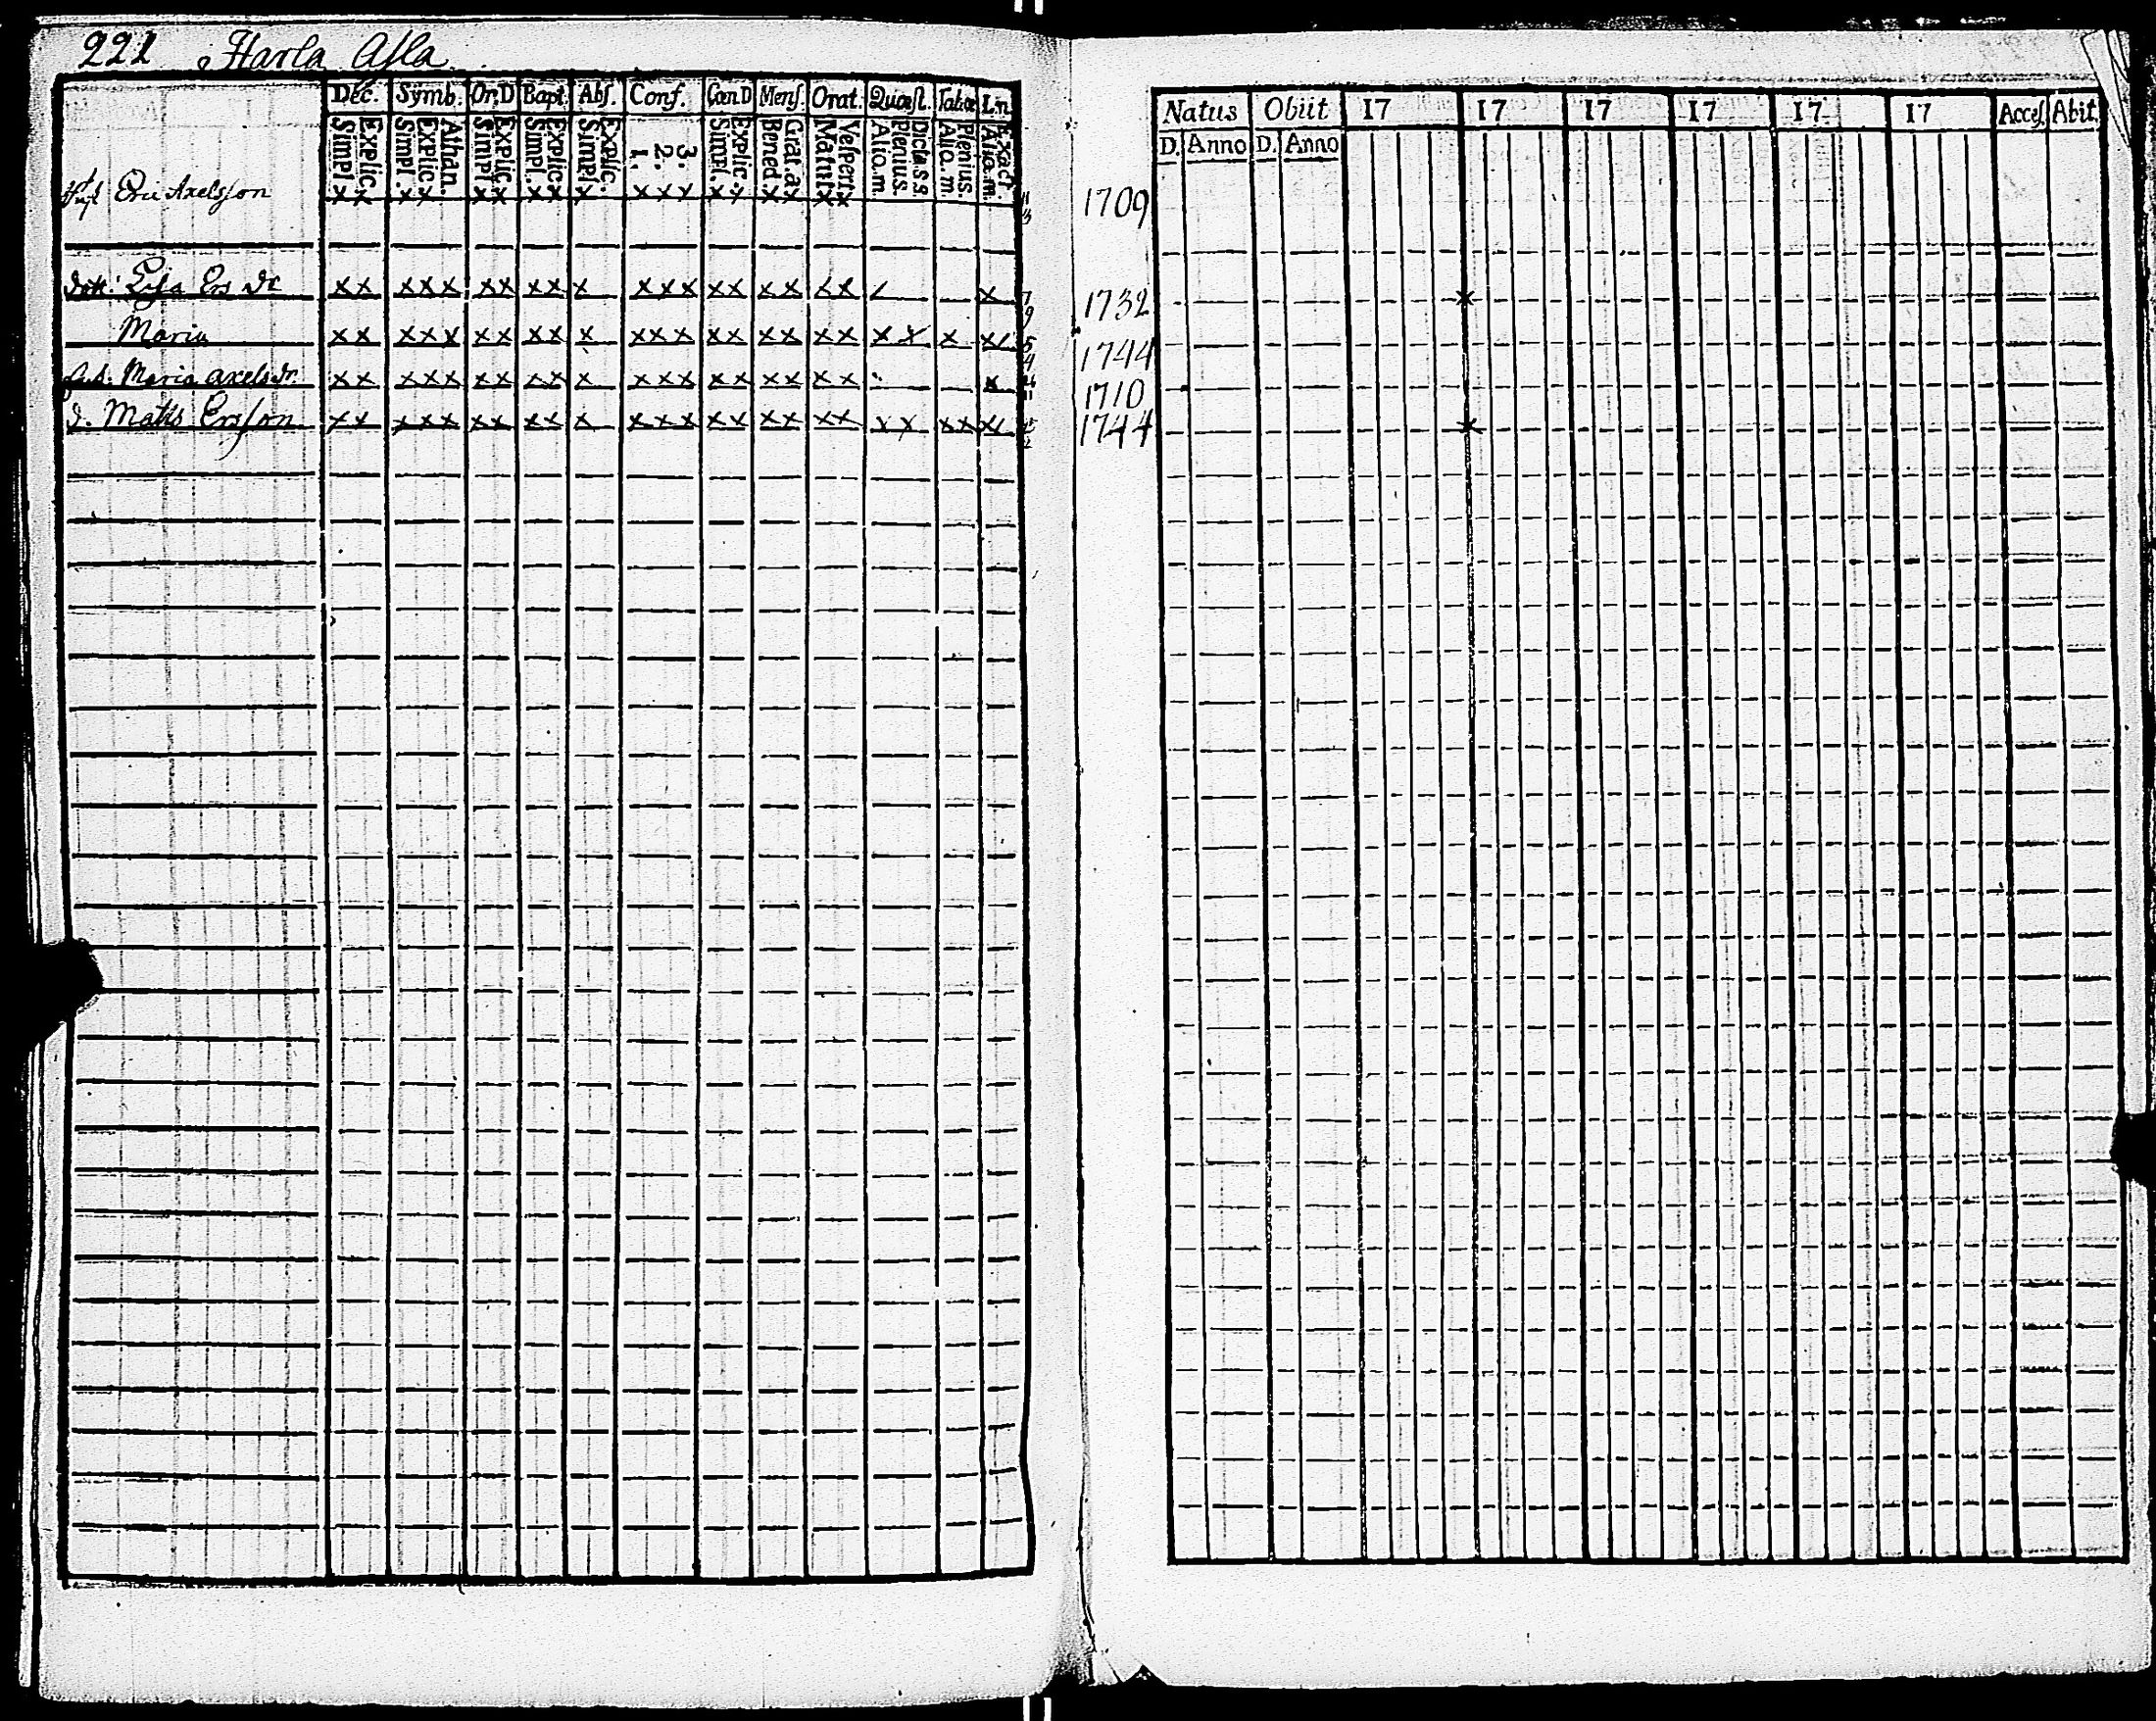 221 Harla Asla
Dec. Symb. Or.D Bapt. Abſ. Conf. Cœn.D Menſ. Orat. Quæſt. Tabæ Ln.
Simpl. Explic. Simpl. Explic. Athan. Simpl. Explic. Simpl. Explic. Simpl. Explic. 1. 2. 3. Simpl. Explic. Bened. Grat.a Matut. Veſpert. Aliq.m. Plenius. Dicta.S.S Aliq.m. Plenius. Aliq.m. Exact
Eric Axelsſon x x x x x x x x x x x x x x x x x x
Lisa Ers dr x x x x x x x x x x x x x x x x x x x x
Maria x x x x x x x x x x x x x x x x x x x x x x x
Maria axels dr. x x x x x x x x x x x x x x x x x x x
d. Matts Ersſon x x x x x x x x x x x x x x x x x x x x x x x
Natus Obiit 17 17 17 17 17 17 Acceſ. Abit.
D. Anno D. Anno
1709
1732 x
1744
1710
1744 x